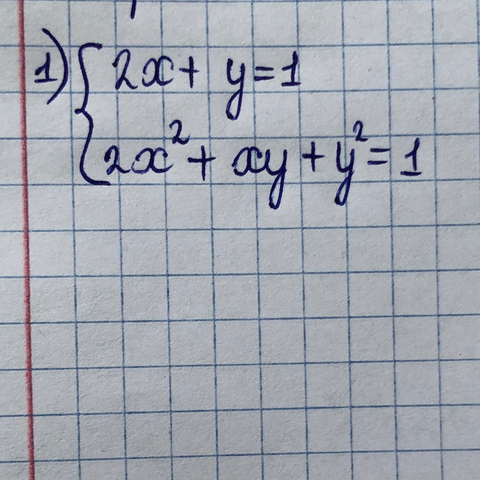 1) { 2x + y = 1
2x² + xy + y² = 1